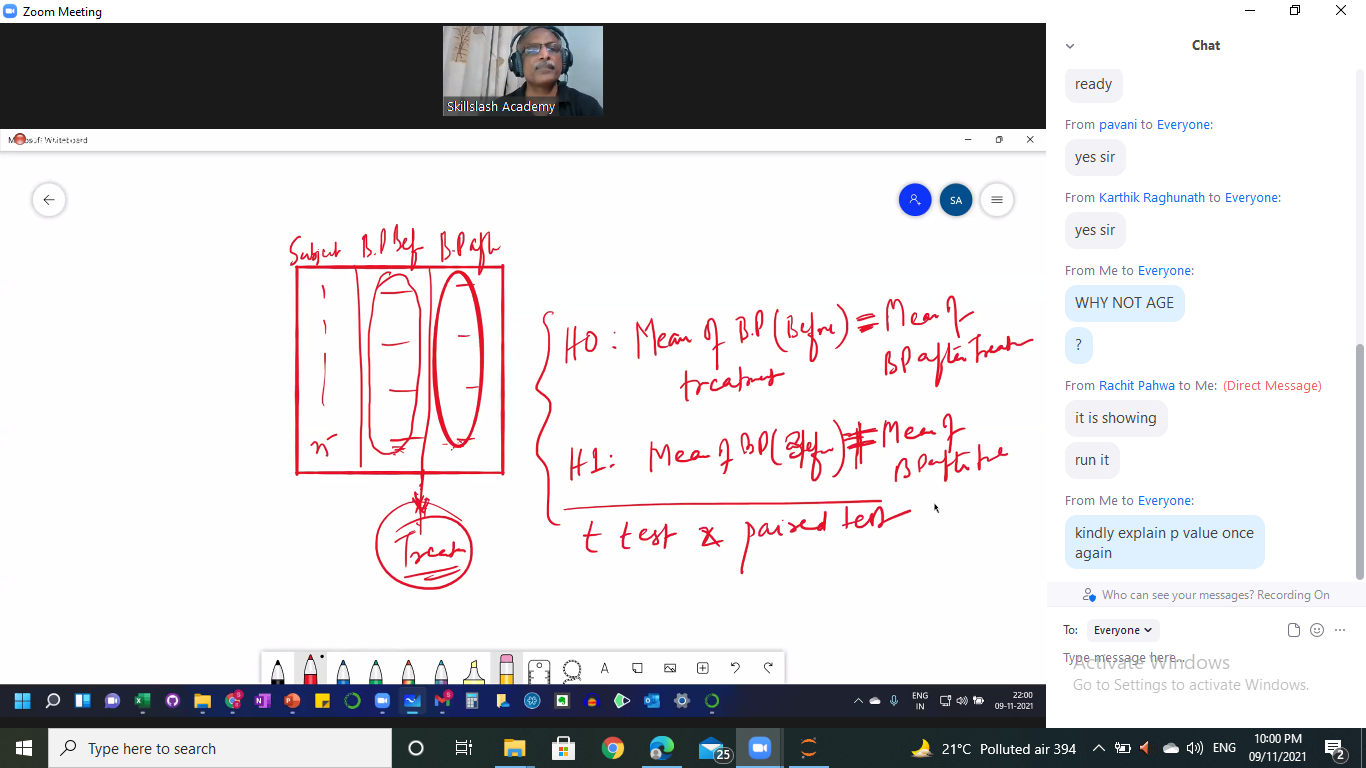 Zoom Meeting
Skillslash Academy
Microsoft Whiteboard
SA
Subject B.P Bef B.P aft
1
1
n
Treat
H0 : Mean of B.P (Before) = Mean of
treatment BP after Treat
H1 : Mean of BP (Before) ≠ Mean of
BP after tre
t test & paired test
A
Chat
ready
From pavani to Everyone:
yes sir
From Karthik Raghunath to Everyone:
yes sir
From Me to Everyone:
WHY NOT AGE
?
From Rachit Pahwa to Me: (Direct Message)
it is showing
run it
From Me to Everyone:
kindly explain p value once
again
Who can see your messages? Recording On
To: Everyone
Type message here...
Activate Windows
Go to Settings to activate Windows.
ENG
IN
22:00
09-11-2021
Type here to search
25
21°C Polluted air 394
ENG
10:00 PM
09/11/2021
2